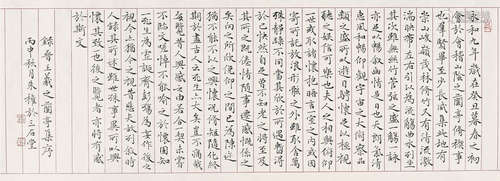 永和九年歲在癸丑暮春之初
會於會稽山陰之蘭亭脩稧事
也羣賢畢至少長咸集此地有
崇山峻領茂林脩竹又有清流激
湍映帶左右引以為流觴曲水列坐
其次雖無絲竹管弦之盛一觴一詠
亦足以暢敘幽情是日也天朗氣清
惠風和暢仰觀宇宙之大俯察品
類之盛所以遊目騁懷足以極視
聽之娛信可樂也夫人之相與俯仰
一世或取諸懷抱悟言一室之內或因
寄所託放浪形骸之外雖取舍萬
殊靜躁不同當其欣於所遇暫得
於己快然自足不知老之將至及
其所之既倦情隨事遷感慨係之
矣向之所欣俛仰之間已為陳迹
猶不能不以之興懷況脩短隨化終
期於盡古人云死生亦大矣豈不痛哉
每覽昔人興感之由若合一契未嘗
不臨文嗟悼不能喻之於懷固知
一死生為虛誕齊彭殤為妄作後之
視今亦猶今之視昔悲夫故列敘時
人錄其所述雖世殊事異所以興
懷其致一也後之覽者亦將有感
於斯文
錄晉王羲之蘭亭集序
丙申秋月朱權於三石堂